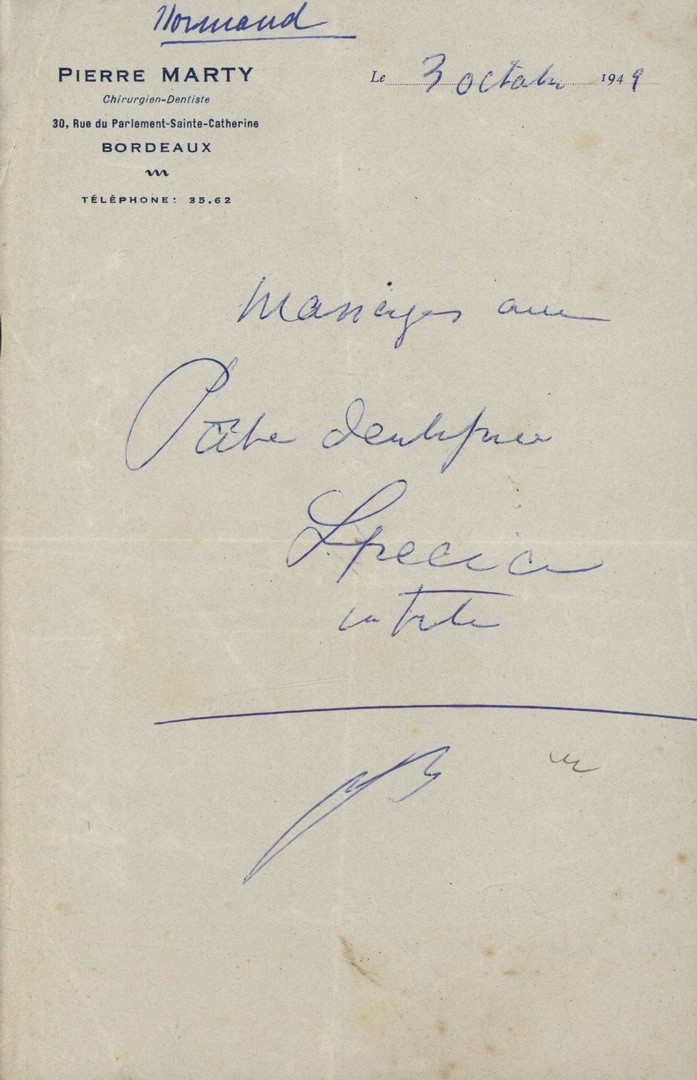 Normand
PIERRE MARTY
Chirurgien-Dentiste
30, Rue du Parlement-Sainte-Catherine
BORDEAUX
TÉLÉPHONE: 35.62
Le 3 octobre 1949
Massages avec
Pâte dentifrice
Specia